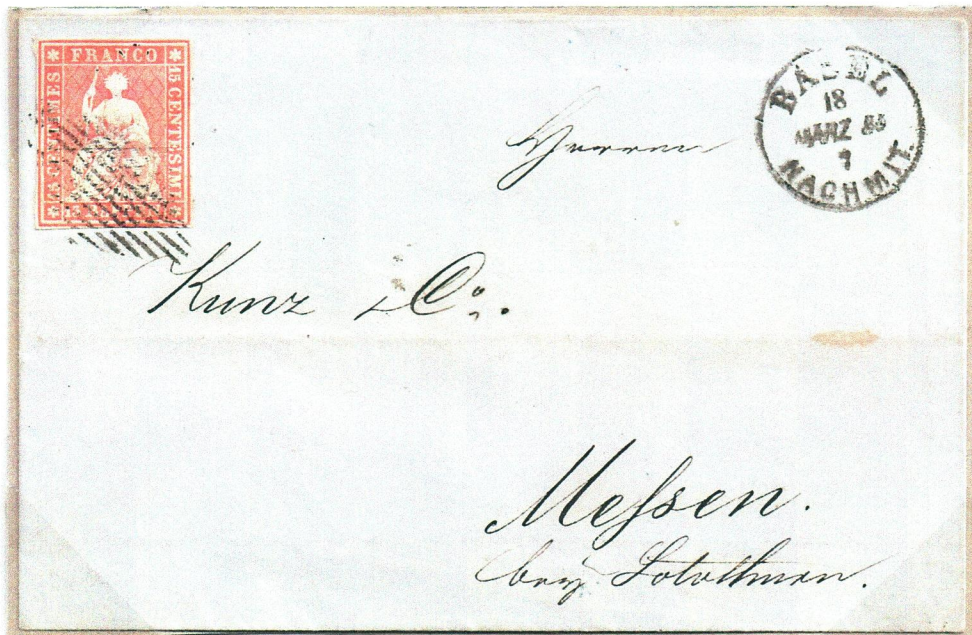 FRANCO
15 CENTIMES
15 CENTESIMI
BASEL
18
MÄRZ 55
7
NACHMIT.
Herren
Kunz & Co.
Meſsen.
bey